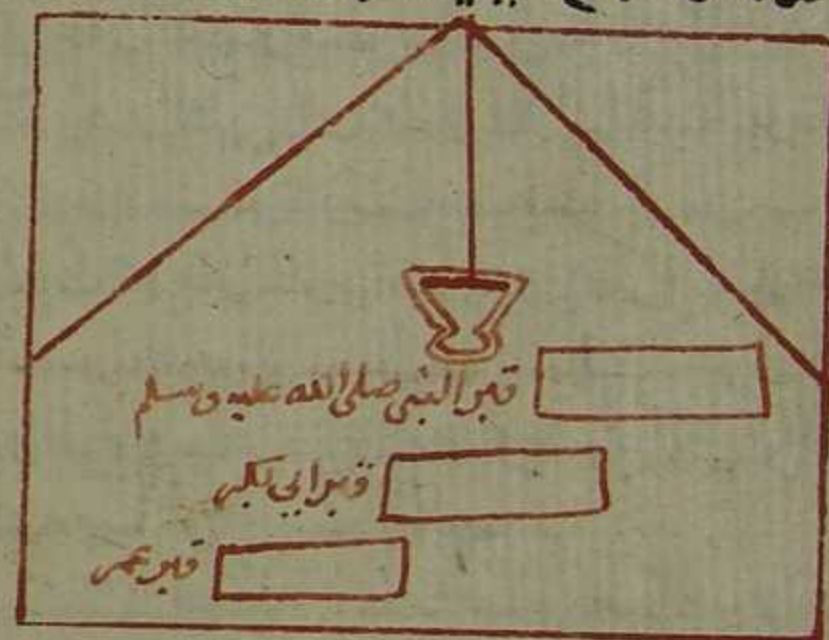 قبر النبي صلى الله عليه وسلم
قبر ابي بكر
قبر عمر